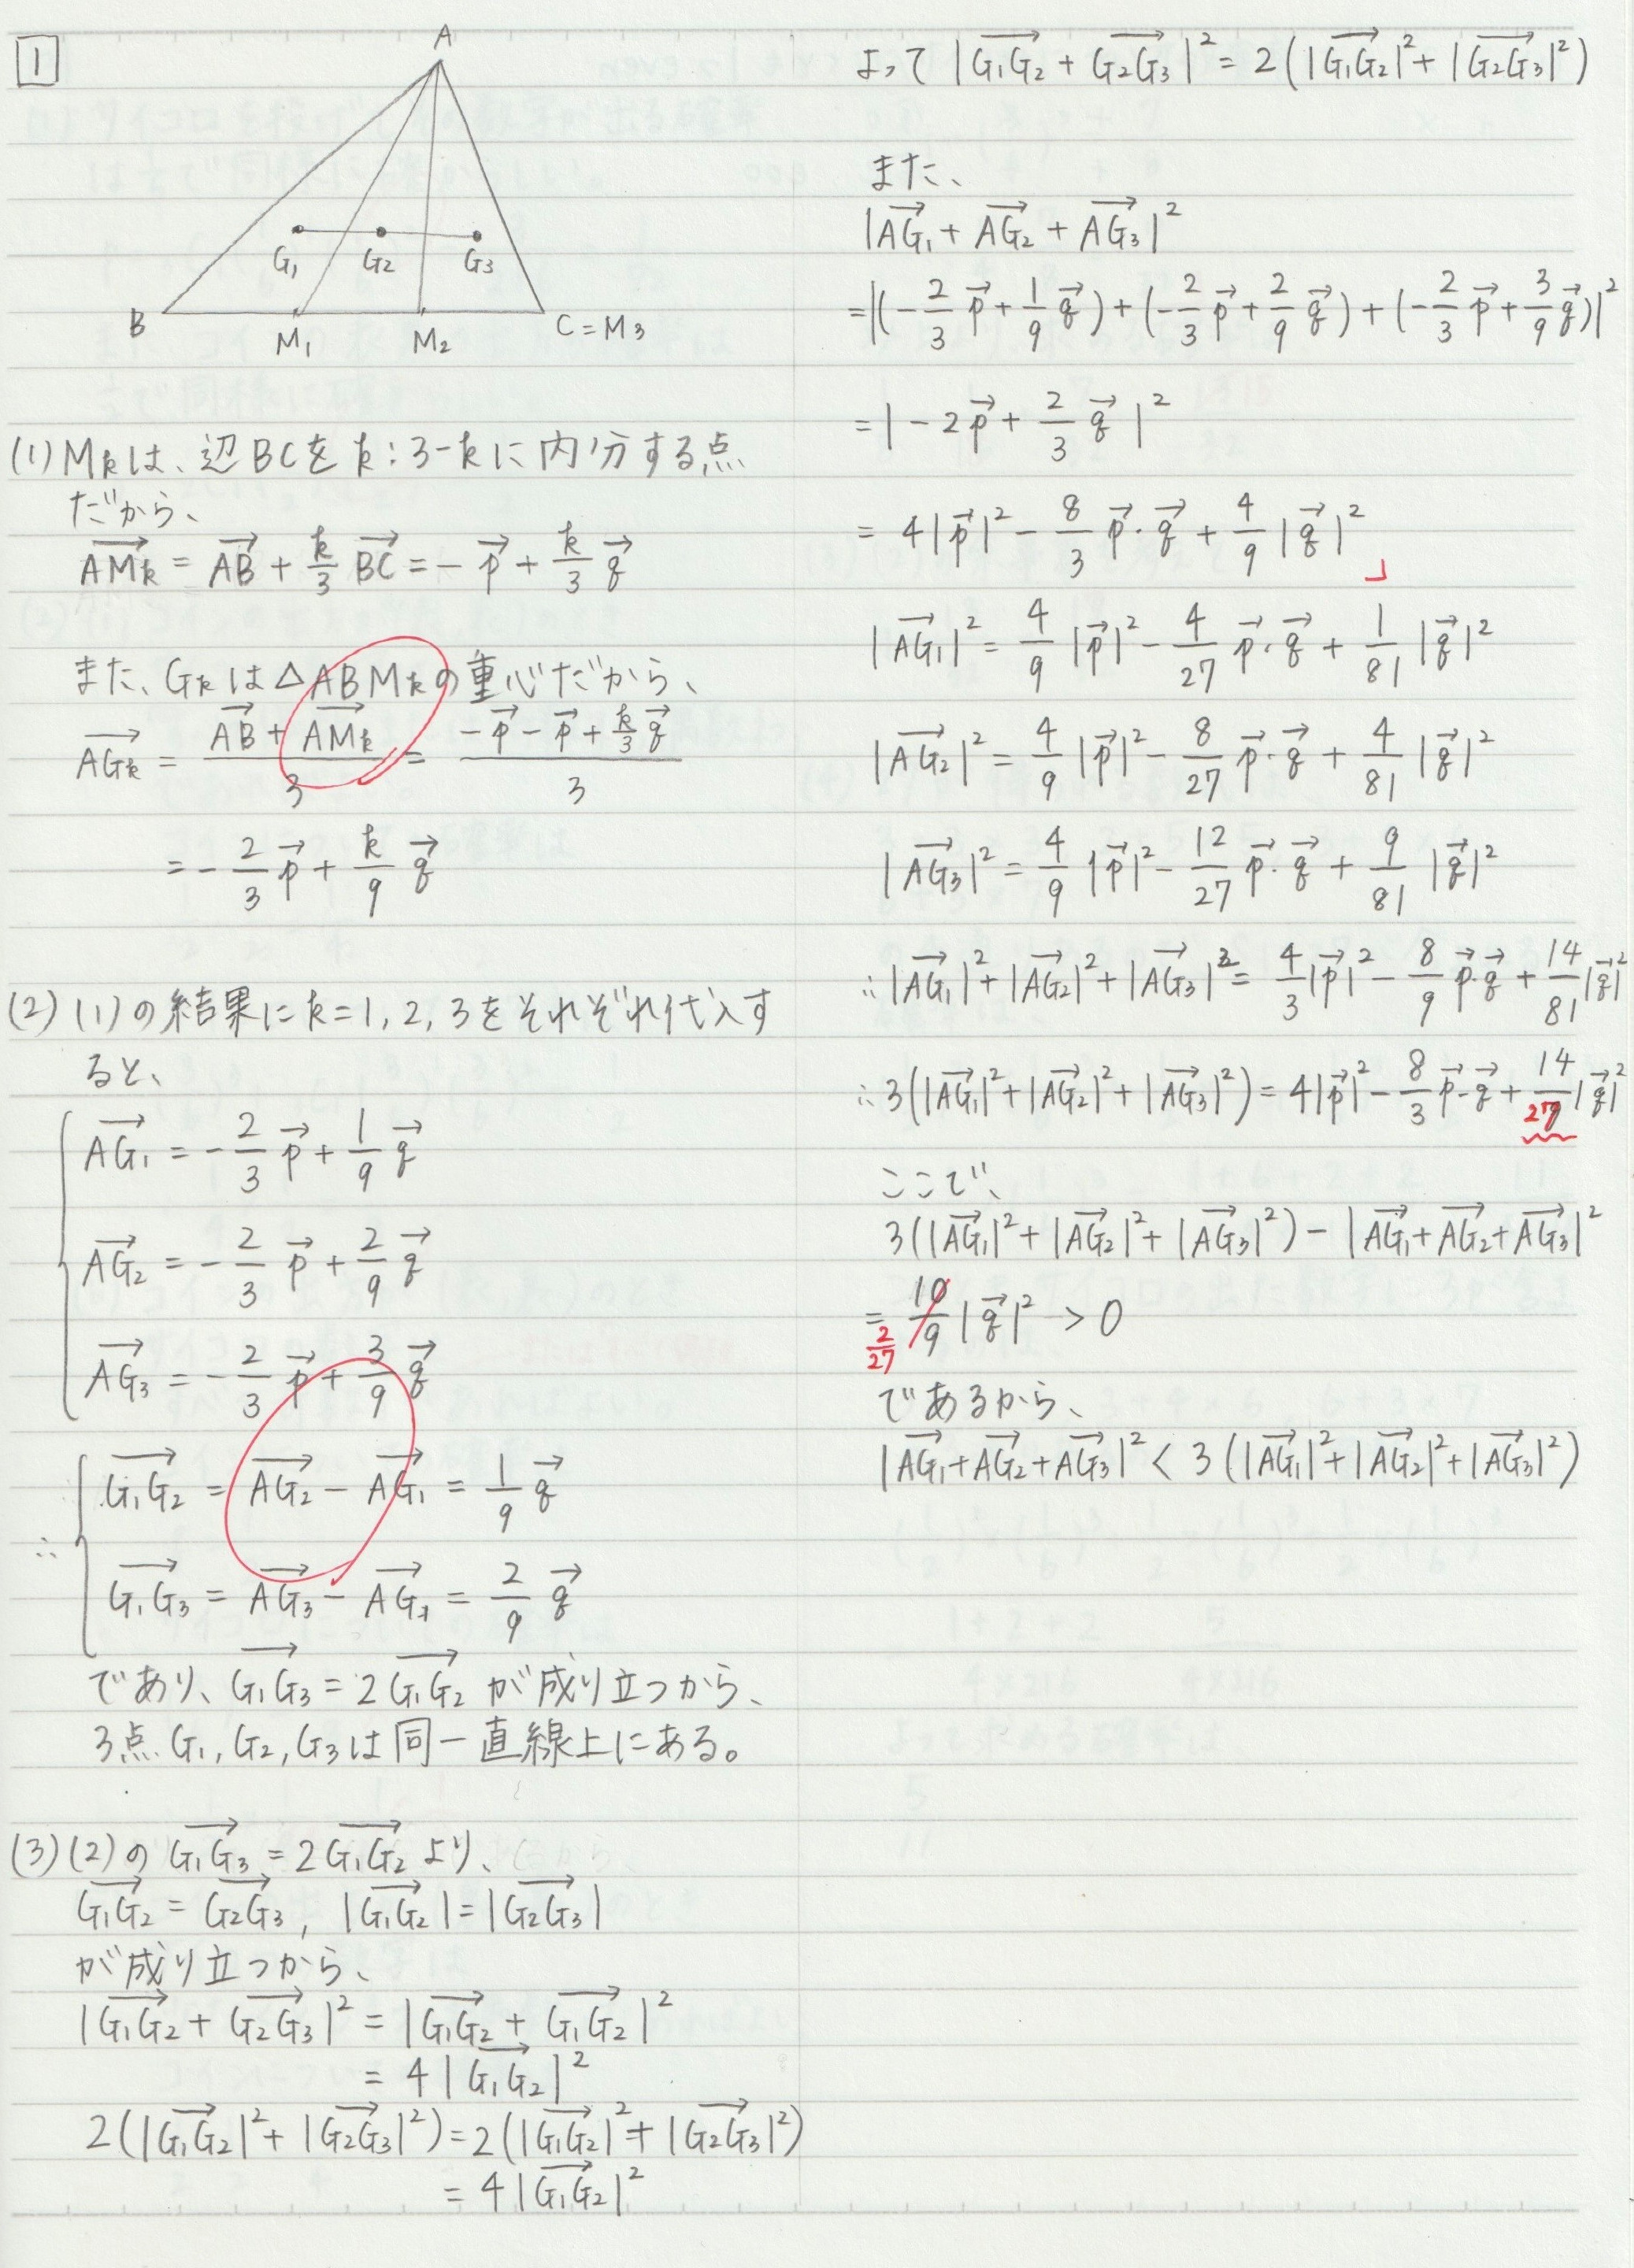 1
A
B
C = M₃
M₁
M₂
G₁
G₂
G₃
(1) Mₖは、辺BCをk:3-kに内分する点
だから、
→AMₖ = →AB + k/3 →BC = -→p + k/3 →q
また、Gₖは△ABMₖの重心だから、
→AGₖ = (→AB + →AMₖ)/3 = (-→p - →p + k/3 →q)/3
= -2/3 →p + k/9 →q
(2) (1)の結果にk=1, 2, 3をそれぞれ代入す
ると、
→AG₁ = -2/3 →p + 1/9 →q
→AG₂ = -2/3 →p + 2/9 →q
→AG₃ = -2/3 →p + 3/9 →q
∴ →G₁G₂ = →AG₂ - →AG₁ = 1/9 →q
→G₁G₃ = →AG₃ - →AG₁ = 2/9 →q
であり、→G₁G₃ = 2→G₁G₂ が成り立つから、
3点 G₁, G₂, G₃は同一直線上にある。
(3) (2)の →G₁G₃ = 2→G₁G₂ より、
→G₁G₂ = →G₂G₃, |→G₁G₂| = |→G₂G₃|
が成り立つから、
|→G₁G₂ + →G₂G₃|² = |→G₁G₂ + →G₁G₂|²
= 4|→G₁G₂|²
2(|→G₁G₂|² + |→G₂G₃|²) = 2(|→G₁G₂|² + |→G₂G₃|²)
= 4|→G₁G₂|²
よって |→G₁G₂ + →G₂G₃|² = 2(|→G₁G₂|² + |→G₂G₃|²)
また、
|→AG₁ + →AG₂ + →AG₃|²
= |(-2/3 →p + 1/9 →q) + (-2/3 →p + 2/9 →q) + (-2/3 →p + 3/9 →q)|²
= |-2→p + 2/3 →q|²
= 4|→p|² - 8/3 →p・→q + 4/9 |→q|² 」
|→AG₁|² = 4/9 |→p|² - 4/27 →p・→q + 1/81 |→q|²
|→AG₂|² = 4/9 |→p|² - 8/27 →p・→q + 4/81 |→q|²
|→AG₃|² = 4/9 |→p|² - 12/27 →p・→q + 9/81 |→q|²
∴ |→AG₁|² + |→AG₂|² + |→AG₃|² = 4/3 |→p|² - 8/9 →p・→q + 14/81 |→q|²
∴ 3(|→AG₁|² + |→AG₂|² + |→AG₃|²) = 4|→p|² - 8/3 →p・→q + 14/27 |→q|²
ここで、
3(|→AG₁|² + |→AG₂|² + |→AG₃|²) - |→AG₁ + →AG₂ + →AG₃|²
= 10/9 |→q|² > 0
2/27
であるから、
|→AG₁ + →AG₂ + →AG₃|² < 3(|→AG₁|² + |→AG₂|² + |→AG₃|²)